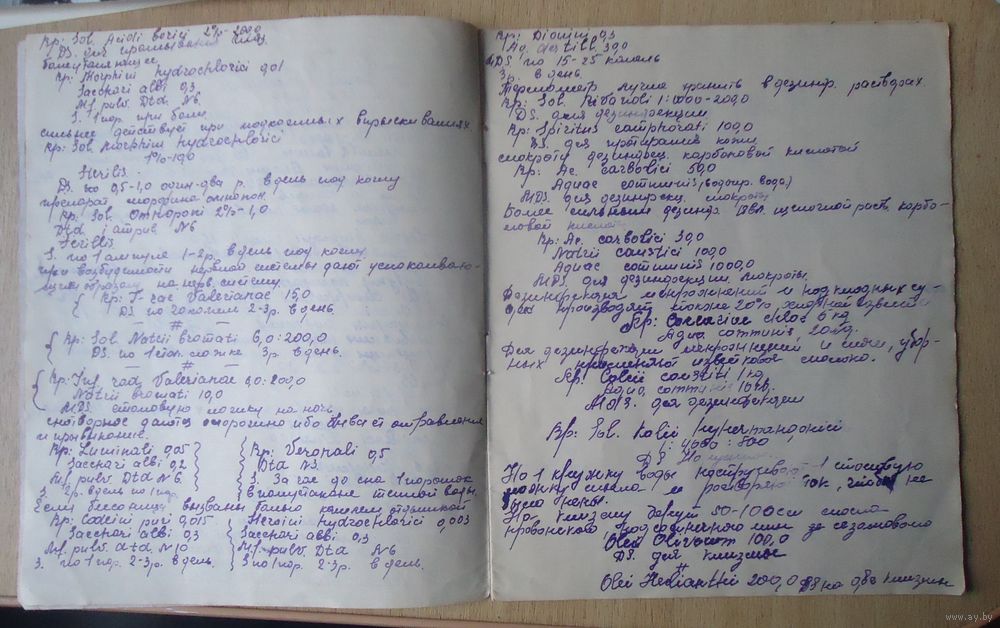 Rp: Sol. Acidi borici 2%-200,0
DS. для промывания глаз
болеутоляющее
Rp: Morphini hydrochlorici 0,01
Sacchari albi 0,3
M.f. pulv. Dtd. N6.
S. 1 пор. при боли
сильнее действует при подкожных впрыскиваниях.
Rp: Sol. Morphini hydrochlorici
1%-10,0
Sterilis.
DS. по 0,5-1,0 один-два р. в день под кожу
препарат морфина омнопон.
Rp. Sol. Omnoponi 2%-1,0
Dtd in amp. N6
Sterilis
S. по 1 ампуле 1-2р. в день под кожу
при возбудимости нервной системы дают успокаиваю-
щие образом на нерв. систему
Rp: T-rae Valerianae 15,0
DS. по капель 2-3р. в день.
#
Rp: Sol. Natrii bromati 6,0:200,0
DS. по 1 стол. ложке 3р. в день.
#
Rp: Inf. rad. Valerianae :200,0
Natrii bromati 10,0
MDS. столовую ложку на ночь
снотворное дается осторожно ибо бывает отравления
и привыкание.
Rp: Luminali 0,05
Sacchari albi 0,2
M.f. pulv. Dtd N6
S. 2р. в день по 1 пор.
Rp: Veronali 0,5
Dtd N3.
S. За час до сна 1 порошок
в полстакане теплой воды
Если бессонница вызваны болью кашлем одышкой
Rp: Codeini puri 0,015
Sacchari albi 0,3
M.f. pulv. dtd N10
S. по 1 пор. 2-3р. в день.
Heroini hydrochlorici 0,003
Sacchari albi 0,3
M.f. pulv. Dtd N6
S по 1 пор. 2-3р. в день.
Rp: Dionini 0,3
Aq. destill. 30,0
MDS по 15-25 капель
3р. в день.
Термометр лучше хранить в дезинф. растворах.
Rp: Sol. Rivanoli 1:1000-200,0
DS. для дезинфекции
Rp: Spiritus camphorati 100,0
DS. для протирания кожи
мокроту дезинфец. карболовой кислотой
Rp: Ac. carbolici 50,0
Aquae communis (водопр. вода)
MDS. для дезинфекц. мокроты
Более сильным дезинф. явл. щелочной раств. карбо-
ловой кислоты
Rp: Ac. carbolici 30,0
Natrii caustici 100,0
Aquae communis 1000,0
MDS. для дезинфекции мокроты.
Дезинфекция испражнений и подкладных су-
ден производят также 20% хлорной извести
Rp: Calcariae chlor. 6 kg
Aqua communis 20 kg.
Для дезинфекции испражнений и мочи, убор-
ных применяют известковое молоко.
Rp: Calcii caustici 1 kg
Aqua communis
MDS. для дезинфекции
Rp: Sol. Kalii hypermanganici
1:4000-300
DS. На
На 1 кружку воды 1 столовую
ложку и растворяют так, чтобы не
было пены.
На клизму берут 50-100см масла
прованского, подсолнечного или
Olei Olivarum 100,0
DS. для клизмы
#
Olei Helianthi 200,0 DS на две клизмы
www.ay.by